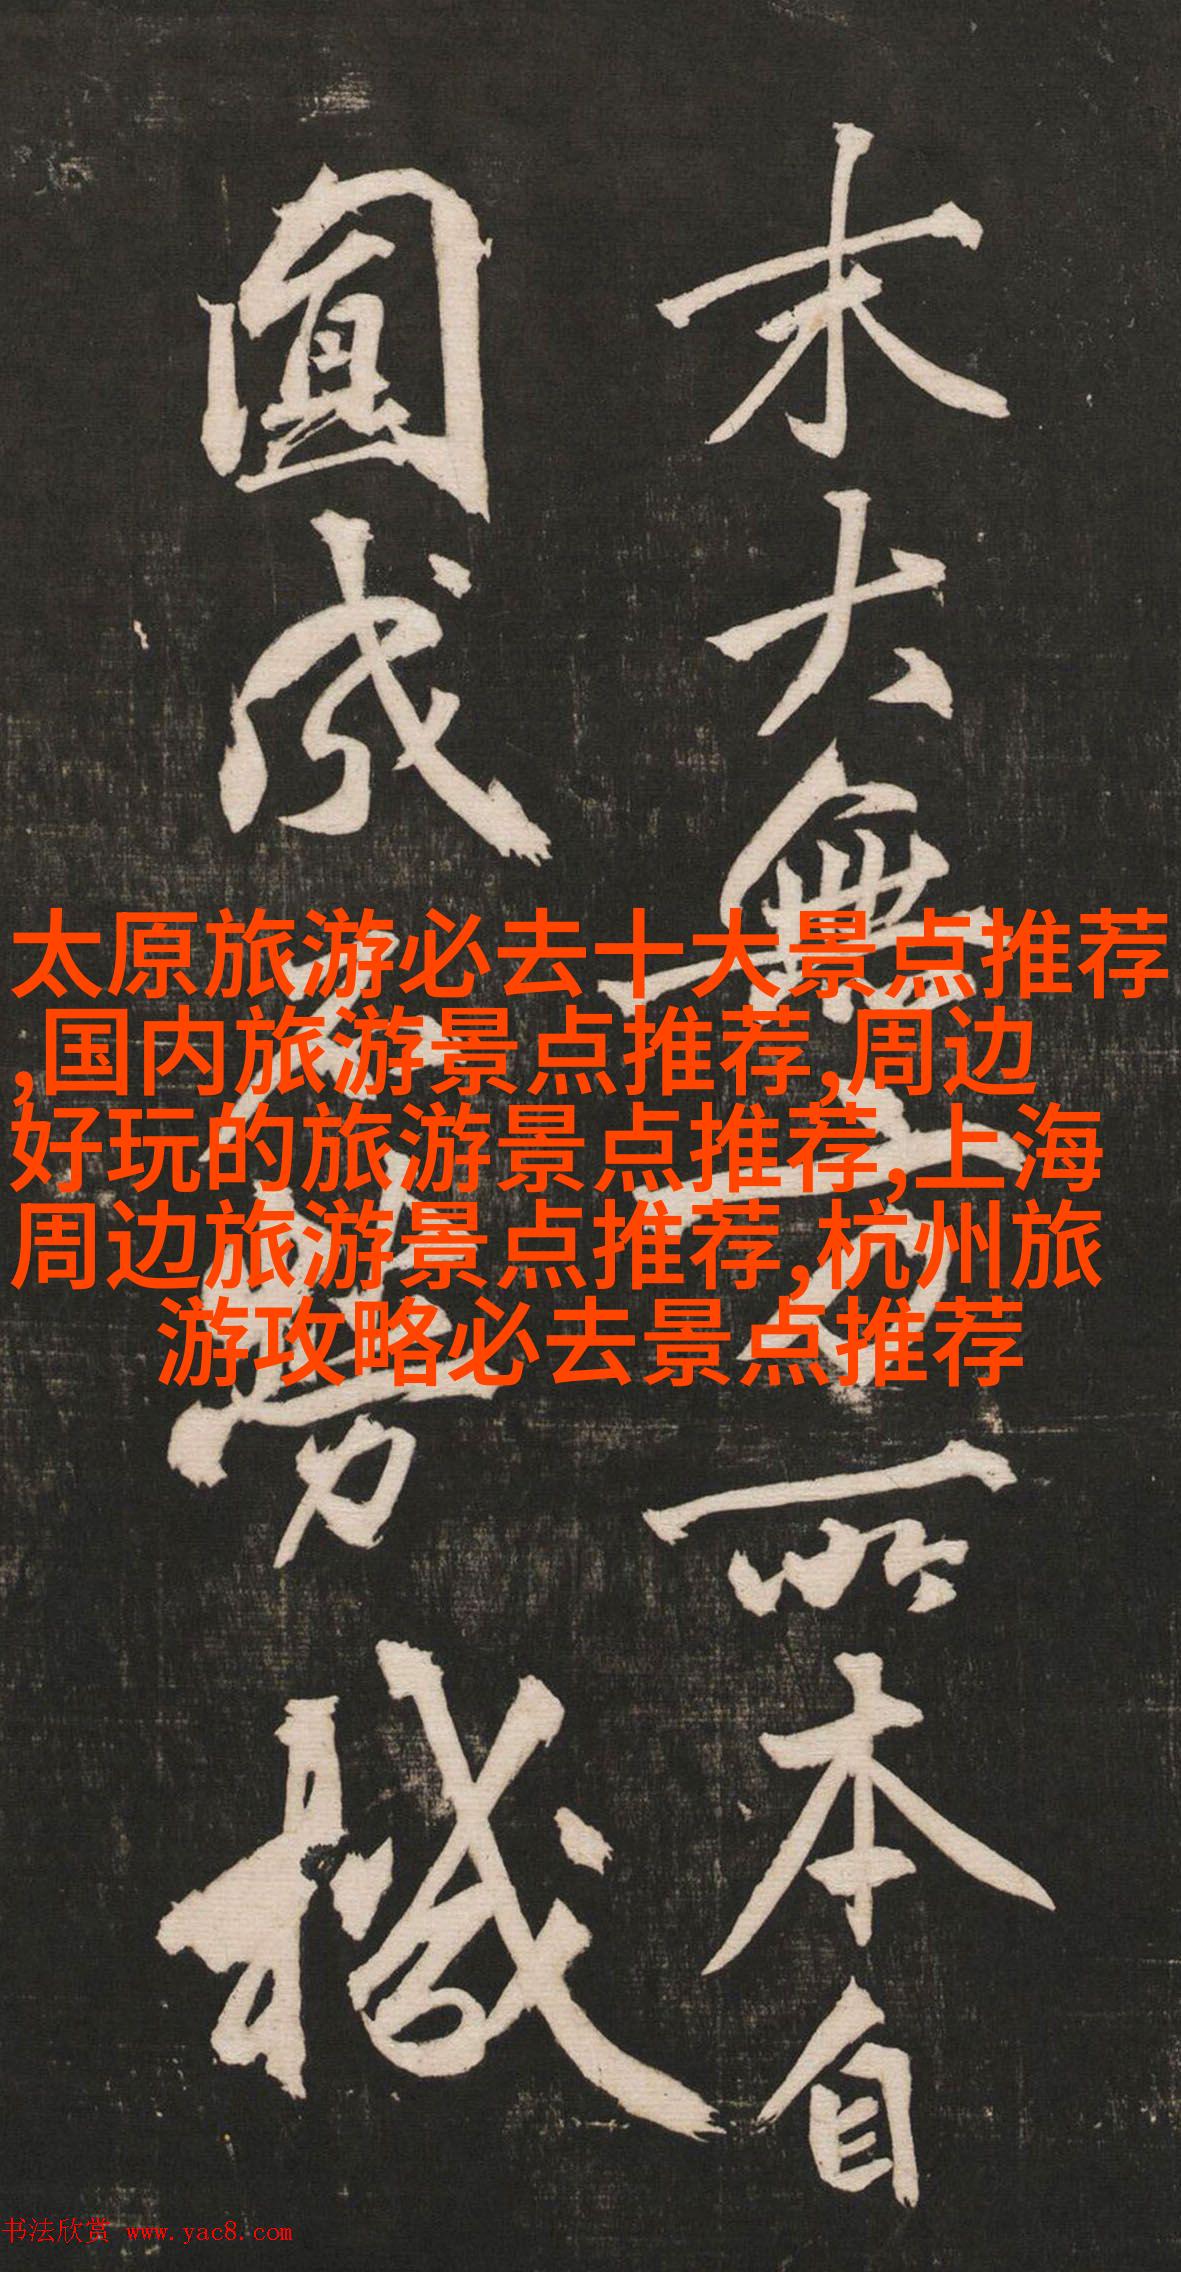 末大無方所本自
圓成不勞機
太原旅游必去十大景点推荐
,国内旅游景点推荐,周边
好玩的旅游景点推荐,上海
周边旅游景点推荐,杭州旅
游攻略必去景点推荐
书法欣赏 www.yac8.com